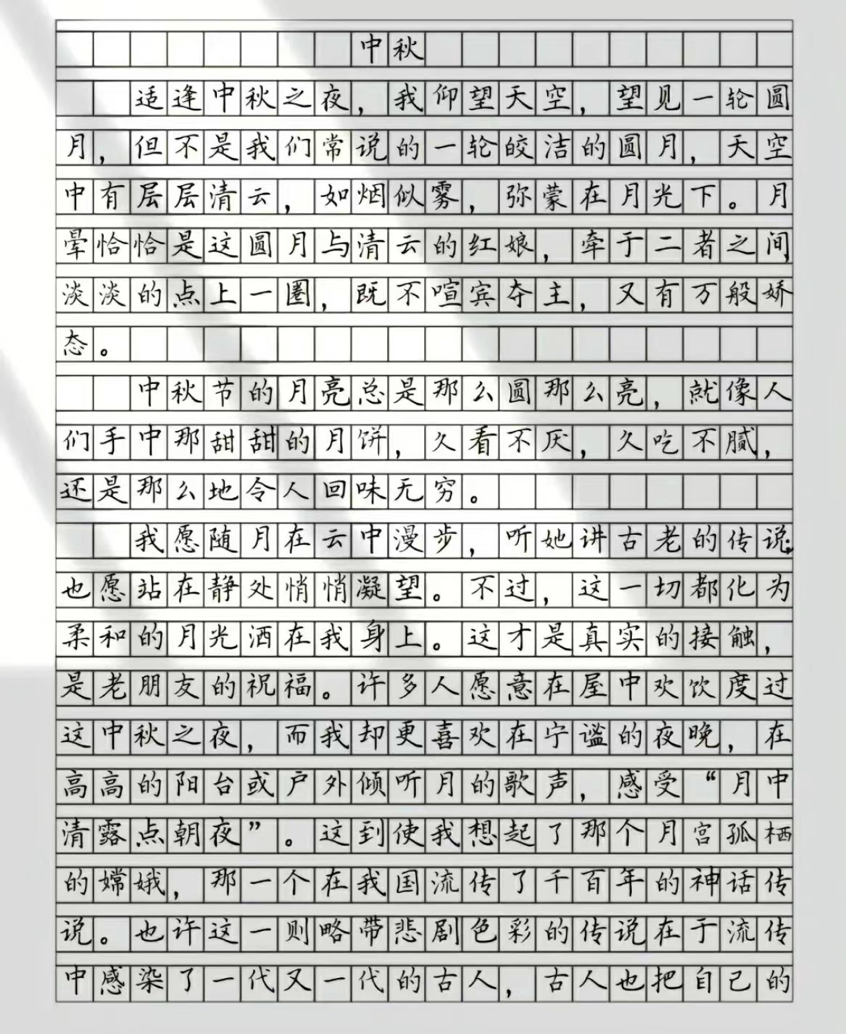 中秋
适逢中秋之夜，我仰望天空，望见一轮圆
月，但不是我们常说的一轮皎洁的圆月，天空
中有层层清云，如烟似雾，弥蒙在月光下。月
晕恰恰是这圆月与清云的红娘，牵于二者之间，
淡淡的点上一圈，既不喧宾夺主，又有万般娇
态。
中秋节的月亮总是那么圆那么亮，就像人
们手中那甜甜的月饼，久看不厌，久吃不腻，
还是那么地令人回味无穷。
我愿随月在云中漫步，听她讲古老的传说；
也愿站在静处悄悄凝望。不过，这一切都化为
柔和的月光洒在我身上。这才是真实的接触，
是老朋友的祝福。许多人愿意在屋中欢饮度过
这中秋之夜，而我却更喜欢在宁谧的夜晚，在
高高的阳台或户外倾听月的歌声，感受“月中
清露点朝夜”。这到使我想起了那个月宫孤栖
的嫦娥，那一个在我国流传了千百年的神话传
说。也许这一则略带悲剧色彩的传说在于流传
中感染了一代又一代的古人，古人也把自己的